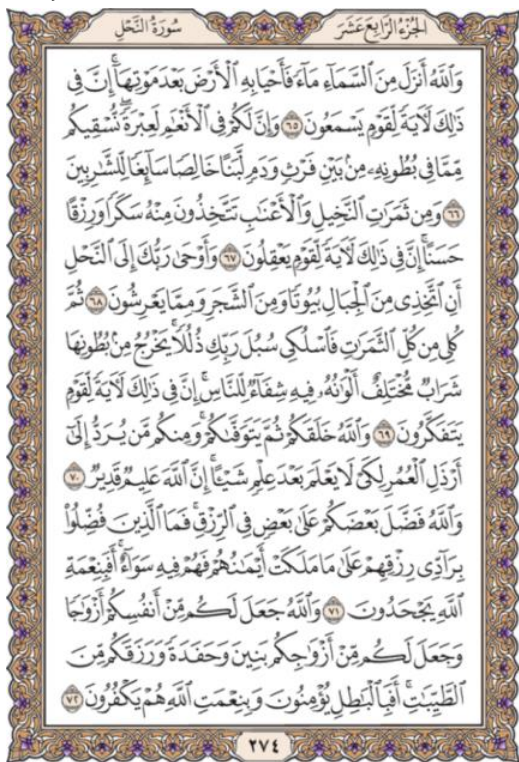 الجُزْءُ الرَّابِعَ عَشَرَ
سُورَةُ النَّحْلِ
وَٱللَّهُ أَنزَلَ مِنَ ٱلسَّمَآءِ مَآءً فَأَحْيَا بِهِ ٱلْأَرْضَ بَعْدَ مَوْتِهَآۚ إِنَّ فِى
ذَٰلِكَ لَـَٔايَةً لِّقَوْمٍ يَسْمَعُونَ ٦٥ وَإِنَّ لَكُمْ فِى ٱلْأَنْعَٰمِ لَعِبْرَةًۖ نُّسْقِيكُم
مِّمَّا فِى بُطُونِهِۦ مِنۢ بَيْنِ فَرْثٍ وَدَمٍ لَّبَنًا خَالِصًا سَآئِغًا لِّلشَّٰرِبِينَ
٦٦ وَمِن ثَمَرَٰتِ ٱلنَّخِيلِ وَٱلْأَعْنَٰبِ تَتَّخِذُونَ مِنْهُ سَكَرًا وَرِزْقًا
حَسَنًاۗ إِنَّ فِى ذَٰلِكَ لَـَٔايَةً لِّقَوْمٍ يَعْقِلُونَ ٦٧ وَأَوْحَىٰ رَبُّكَ إِلَى ٱلنَّحْلِ
أَنِ ٱتَّخِذِى مِنَ ٱلْجِبَالِ بُيُوتًا وَمِنَ ٱلشَّجَرِ وَمِمَّا يَعْرِشُونَ ٦٨ ثُمَّ
كُلِى مِن كُلِّ ٱلثَّمَرَٰتِ فَٱسْلُكِى سُبُلَ رَبِّكِ ذُلُلًاۚ يَخْرُجُ مِنۢ بُطُونِهَا
شَرَابٌ مُّخْتَلِفٌ أَلْوَٰنُهُۥ فِيهِ شِفَآءٌ لِّلنَّاسِۗ إِنَّ فِى ذَٰلِكَ لَـَٔايَةً لِّقَوْمٍ
يَتَفَكَّرُونَ ٦٩ وَٱللَّهُ خَلَقَكُمْ ثُمَّ يَتَوَفَّىٰكُمْۚ وَمِنكُم مَّن يُرَدُّ إِلَىٰٓ
أَرْذَلِ ٱلْعُمُرِ لِكَىْ لَا يَعْلَمَ بَعْدَ عِلْمٍ شَيْـًٔاۚ إِنَّ ٱللَّهَ عَلِيمٌ قَدِيرٌ ٧٠
وَٱللَّهُ فَضَّلَ بَعْضَكُمْ عَلَىٰ بَعْضٍ فِى ٱلرِّزْقِۚ فَمَا ٱلَّذِينَ فُضِّلُوا۟
بِرَآدِّى رِزْقِهِمْ عَلَىٰ مَا مَلَكَتْ أَيْمَٰنُهُمْ فَهُمْ فِيهِ سَوَآءٌۚ أَفَبِنِعْمَةِ
ٱللَّهِ يَجْحَدُونَ ٧١ وَٱللَّهُ جَعَلَ لَكُم مِّنْ أَنفُسِكُمْ أَزْوَٰجًا
وَجَعَلَ لَكُم مِّنْ أَزْوَٰجِكُم بَنِينَ وَحَفَدَةً وَرَزَقَكُم مِّنَ
ٱلطَّيِّبَٰتِۚ أَفَبِٱلْبَٰطِلِ يُؤْمِنُونَ وَبِنِعْمَتِ ٱللَّهِ هُمْ يَكْفُرُونَ ٧٢
٢٧٤